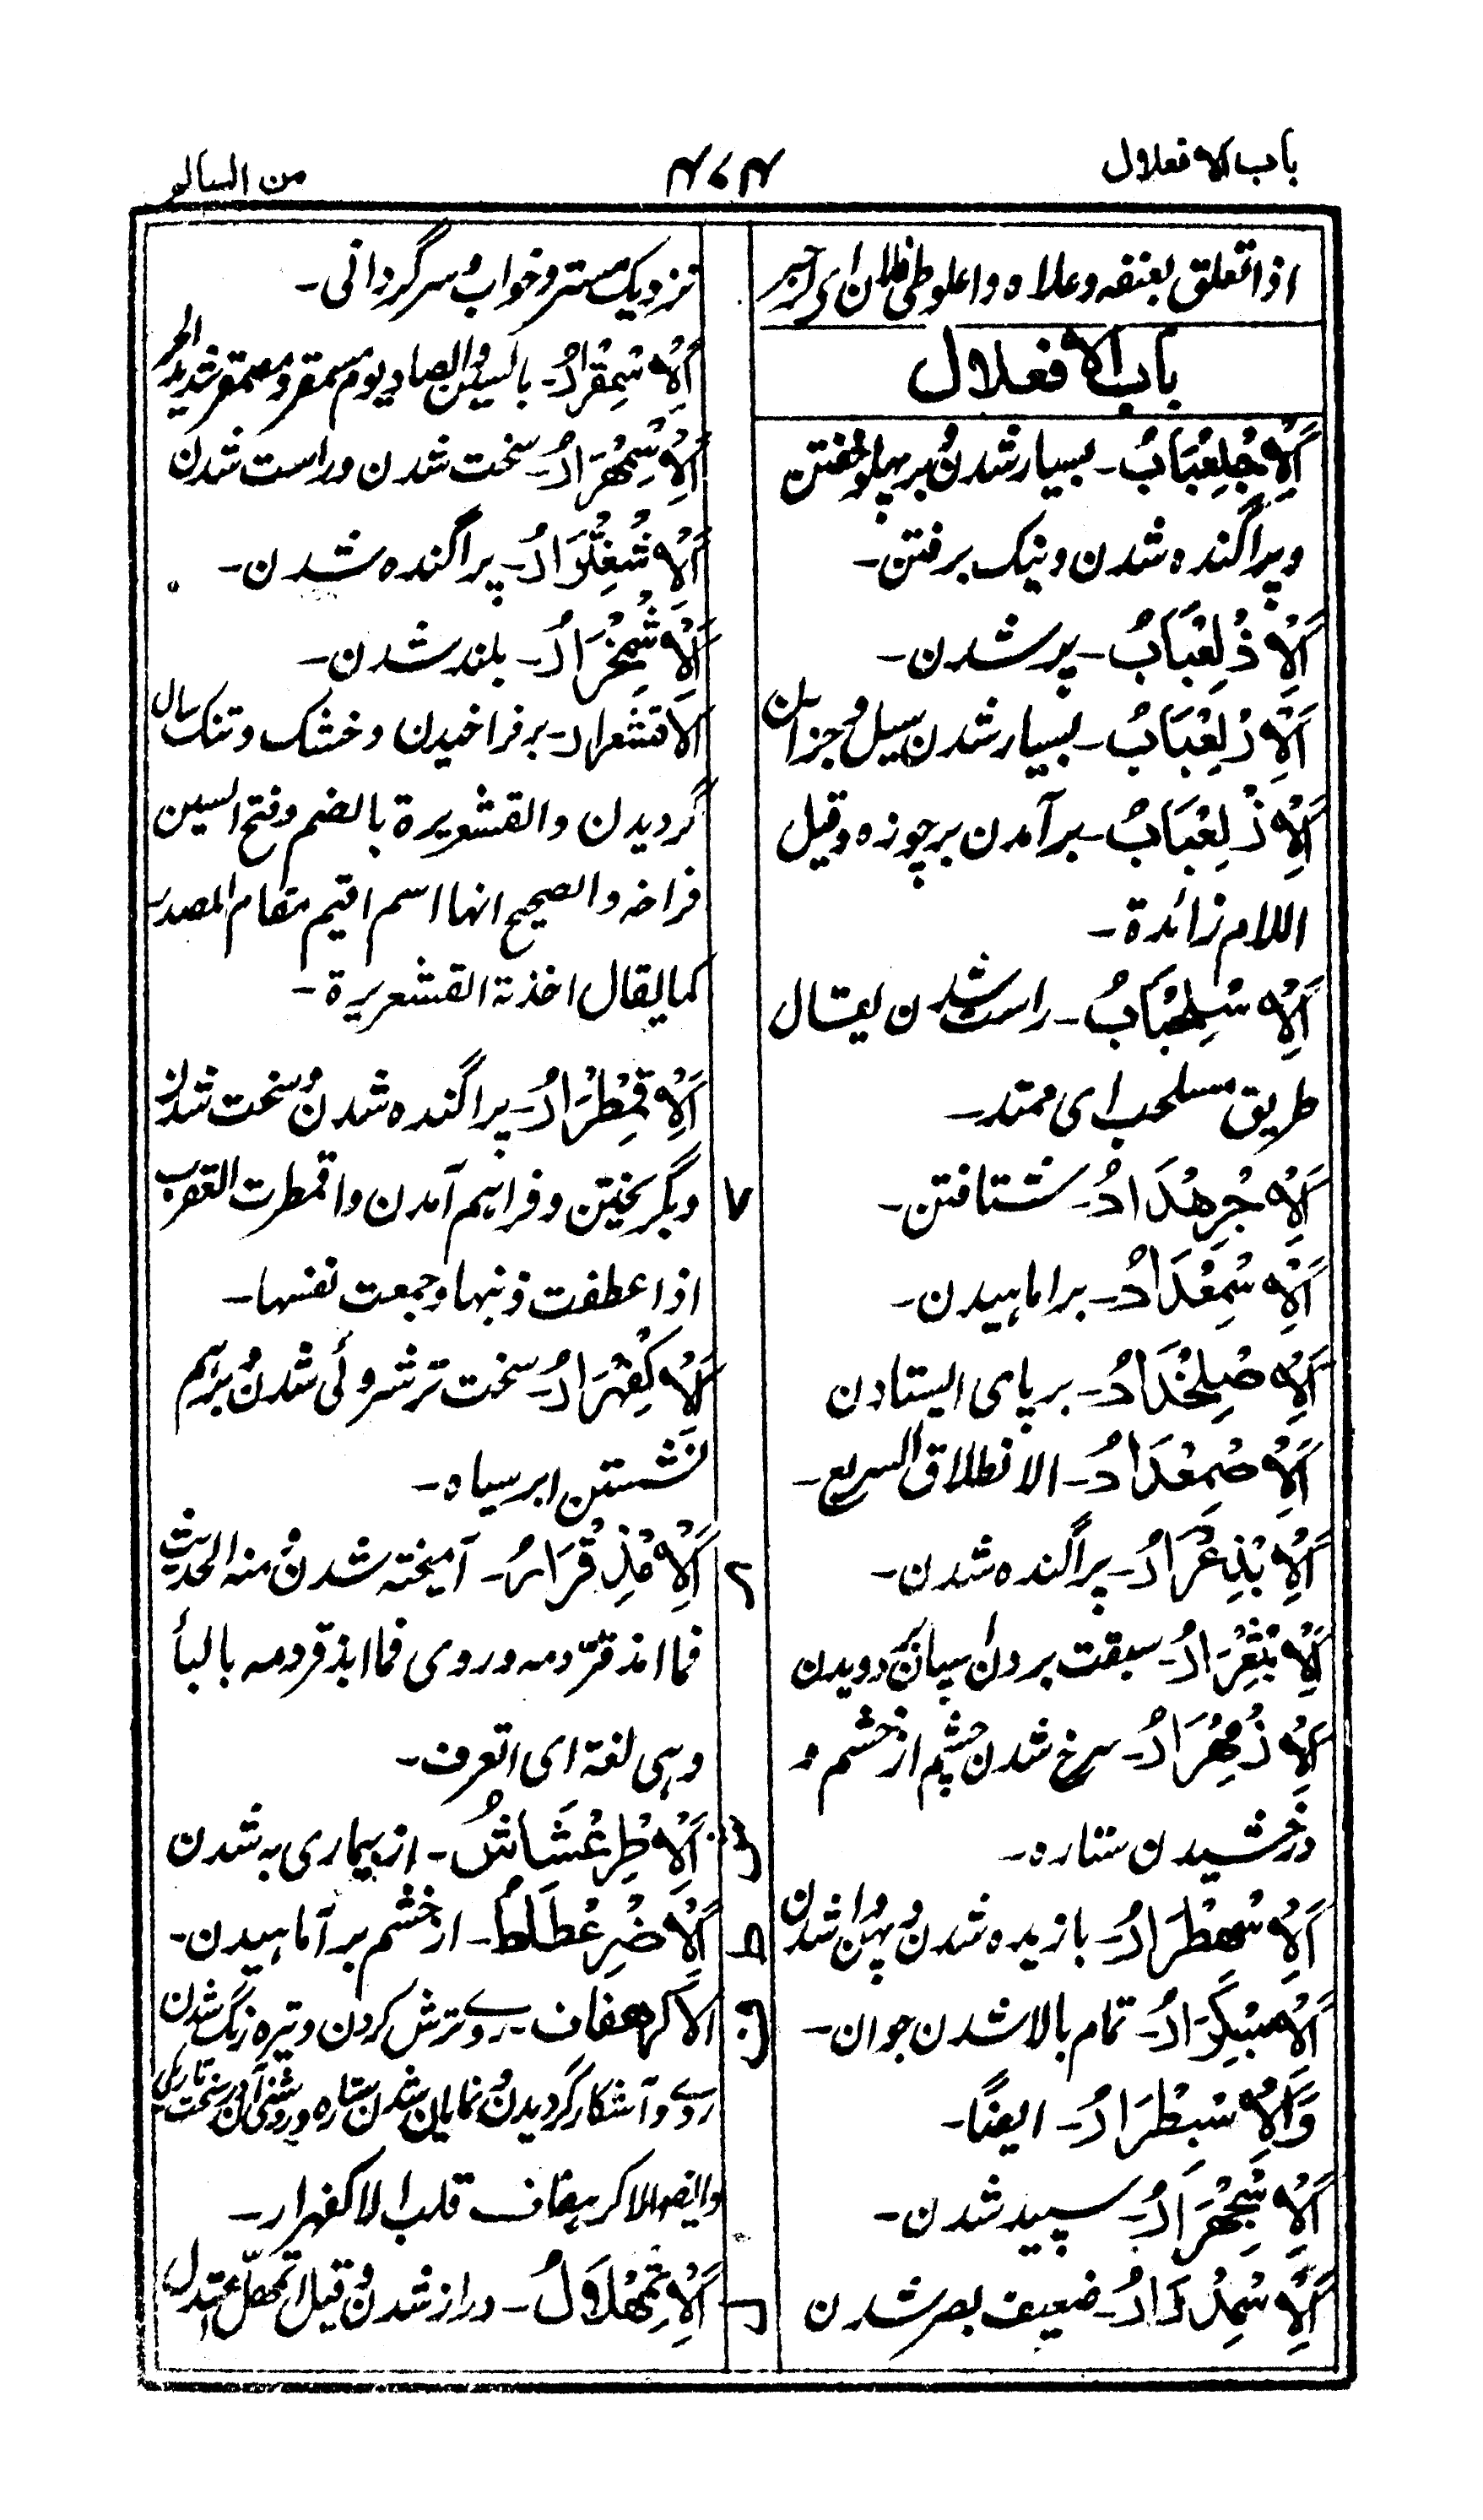 باب الافعلال
۴۷۴
من السالم
اذا تعلق بعنقه وعلاه واعلوطنى فلان اى
باب الافعلال
اَلْاِجْلِعْبَابُ۔ بسیار شدن و بر پهلو خفتن
و پراگنده شدن و نیک برفتن۔
اَلْاِذْلِعْبَابُ۔ پر شدن۔
اَلْاِزْلِعْبَابُ۔ بسیار شدن سیل و جز آن
اَلْاِزْلِغْبَابُ۔ برآمدن پر چوزه و قیل
اللام زائدة۔
اَلْاِسْلِحْبَابُ۔ راست شدن یقال
طریق مسلحب ای ممتد۔
اَلْاِجْرِهْدَادُ۔ شتافتن۔
اَلْاِسْمِغْدَادُ۔ بر اماہیدن۔
اَلْاِصْلِخْدَادُ۔ بر پای ایستادن
اَلْاِصْمِعْدَادُ۔ الانطلاق السریع۔
اَلْاِبْذِعْرَارُ۔ پراگنده شدن۔
اَلْاِبْثِعْرَارُ۔ سبقت بردن اسپان و دویدن
اَلْاِزْمِهْرَارُ۔ سرخ شدن چشم از خشم و
درخشیدن ستاره۔
اَلْاِسْمِطْرَارُ۔ بازیده شدن و پهن شدن
اَلْاِسْبِكْرَارُ۔ تمام بالا شدن جوان۔
وَالْاِسْبِطْرَارُ۔ ایضًا۔
اَلْاِسْجِهْرَارُ۔ سپید شدن۔
اَلْاِسْمِدْرَارُ۔ ضعیف بصر شدن
نزدیک مستی و خواب و سرگردانی۔
اَلْاِسْمِقْرَارُ۔ بالسین والصاد یوم مسمقر و مصمقر شدید الحر
اَلْاِسْمِهْرَارُ۔ سخت شدن و راست شدن
اَلْاِشْفِتْرَارُ۔ پراگنده شدن۔
اَلْاِشْمِخْرَارُ۔ بلند شدن۔
الاقشعرار۔ برفراخیدن و خشک و تنک سال
گردیدن والقشعریرة بالضم وفتح الشین
فراخه والصحیح انها اسم اقیم مقام المصدر
کما یقال اخذته القشعریرة۔
اَلْاِقْمِطْرَارُ۔ پراگنده شدن و سخت شدن
و بگریختن و فراہم آمدن واقمطرت العقرب
اذا عطفت ذنبها وجمعت نفسها۔
اَلْاِكْفِهْرَارُ۔ سخت ترشروئی شدن و برہم
نشستن ابر سیاه۔
اَلْاِمْذِقْرَارُ۔ آمیخته شدن ومنه الحدیث
فما امذقرّ دمه وروی فما ابذقر دمه بالبأ
وہی لغة ای تعرف۔
اَلْاِطْرِغْشَاشُ۔ از بیماری به شدن
اَلْاِضْرِغْطَاطُ۔ از خشم بر آماہیدن۔
الاکرهفاف۔ روے ترش کردن و تیره رنگ شدن
روے و آشکار گردیدن و نمایان شدن ستاره و روشنی آن در سخت تاریکی
وایضًا الاکرہفاف قلب الاکفهرار۔
اَلْاِتْمِهْلَالُ۔ دراز شدن و قیل اتمهلّ اعتدل
۷
ش
ط
ف
ل